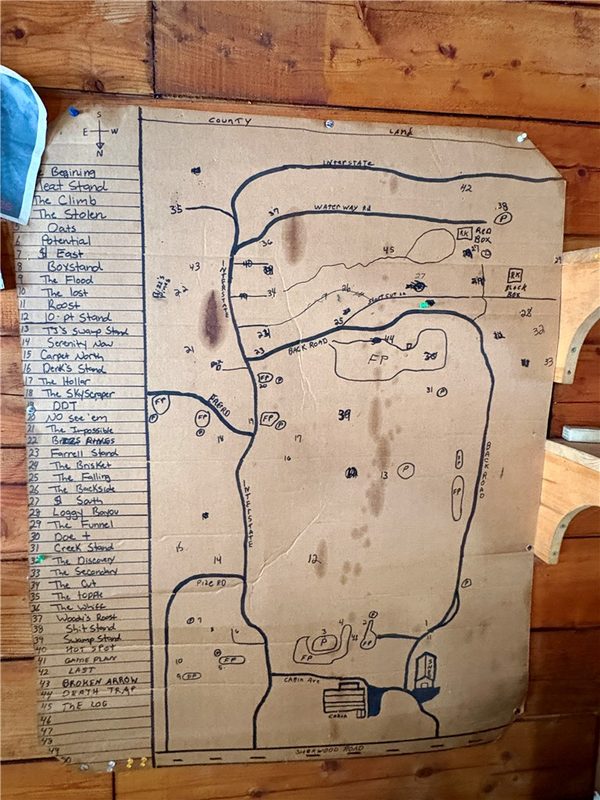 COUNTY LAND
S
E W
N
Begining
Meat Stand
The Climb
The Stolen
Oats
6 Potential
7 $ East
8 Boxstand
9 The Flood
10 The lost
11 Roost
12 10-pt Stand
13 TJ's Swamp Stand
14 Serenity Now
15 Carpet North
16 Derik's Stand
17 The Hollar
18 The Skyscraper
19 DDT
20 No see'em
21 The Impossible
22
23 Farrell Stand
24 The Brisket
25 The Falling
26 The Backside
27 $ South
28 Loggy Bayou
29 The Funnel
30 Doe +
31 Creek Stand
32 The Discovery
33 The Secondary
34 The Cut
35 The topple
36 The Whiff
37 Woody's Roost
38 Shit Stand
39 Swamp Stand
40 HOT SPOT
41 GAME PLAN
42 LAST
43 BROKEN ARROW
44 DEATH TRAP
45 THE LOG
46
47
48
49
50
INTERSTATE
42
35
37
WATER WAY RD
38
P
36
RK RED BOX
45
43
INTERSTATE
RK BLACK BOX
34
26
27
25
28
32
21
23
BACK ROAD
44
FP
33
FP
20
31
P
FP
FP
PARRD
FP
39
18
17
16
13
P
BACK ROAD
FP
INTERSTATE
6
14
12
PIZE RD
7
3
P
4
2
FP
FP
1
10
FP
5
9
FP
CABIN AVE
CABIN
SHED
SHERWOOD ROAD